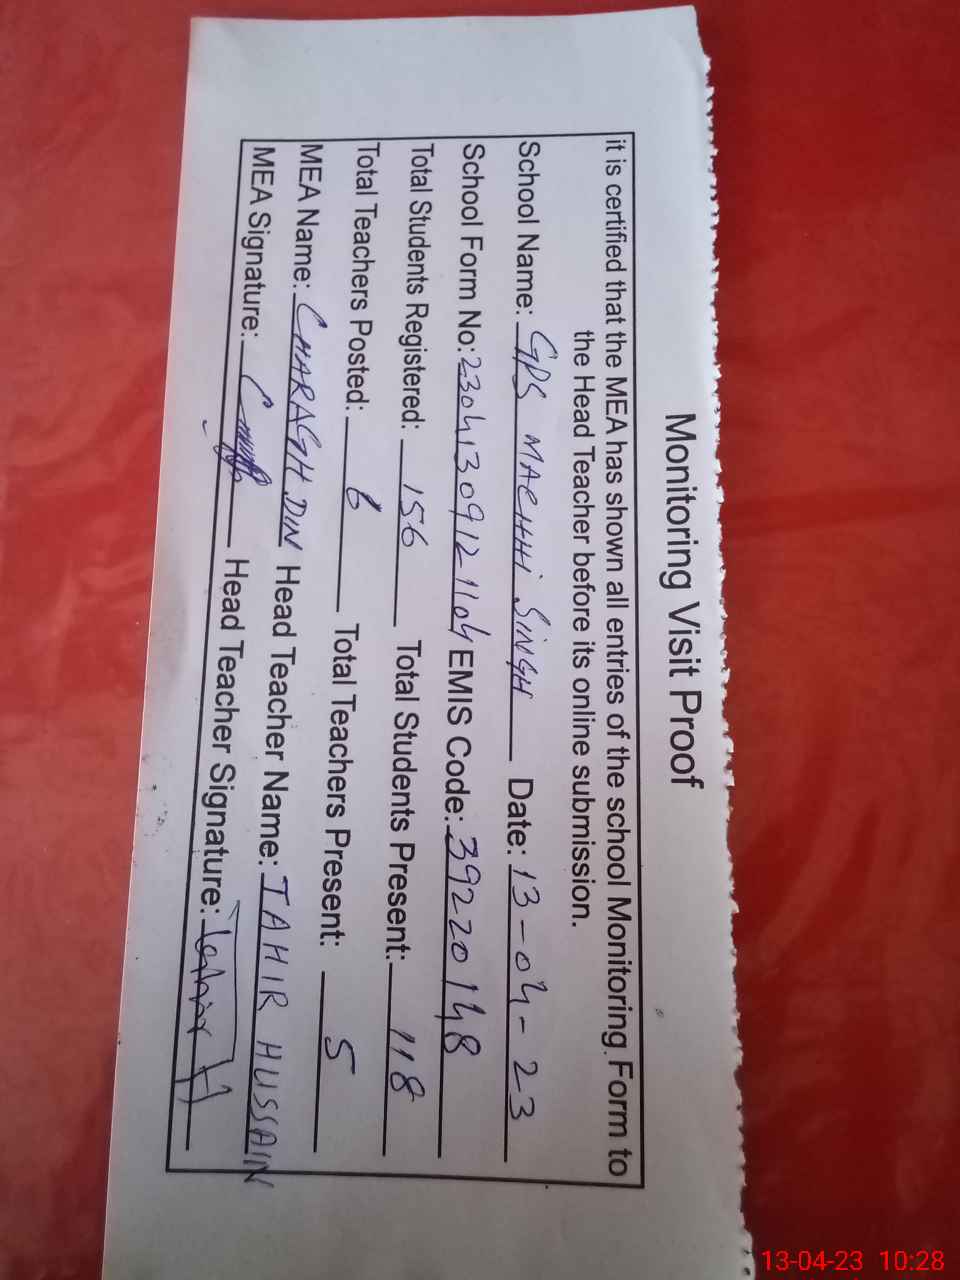 Monitoring Visit Proof
it is certified that the MEA has shown all entries of the school Monitoring Form to
the Head Teacher before its online submission.
School Name: GPS MACHHI SINGH Date: 13-04-23
School Form No: 23041309121104 EMIS Code: 39220148
Total Students Registered: 156 Total Students Present: 118
Total Teachers Posted: 6 Total Teachers Present: 5
MEA Name: CHARAGH DIN Head Teacher Name: TAHIR HUSSAIN
MEA Signature: Head Teacher Signature:
13-04-23 10:28